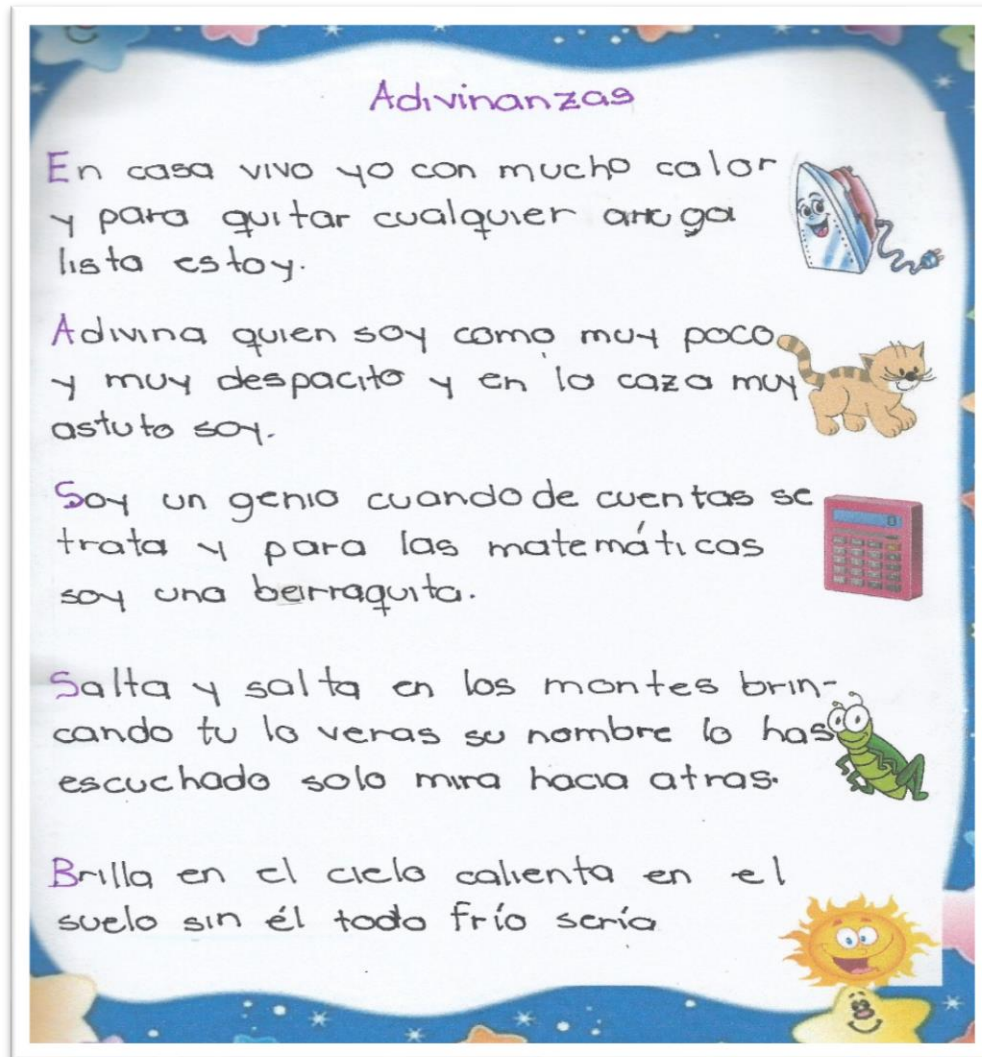 Adivinanzas
En casa vivo yo con mucho calor
y para quitar cualquier arruga
lista estoy.
Adivina quien soy como muy poco
y muy despacito y en la caza muy
astuto soy.
Soy un genio cuando de cuentas se
trata y para las matemáticas
soy una berraquita.
Salta y salta en los montes brin-
cando tu lo veras su nombre lo has
escuchado solo mira hacia atras.
Brilla en el cielo calienta en el
suelo sin él todo frío sería